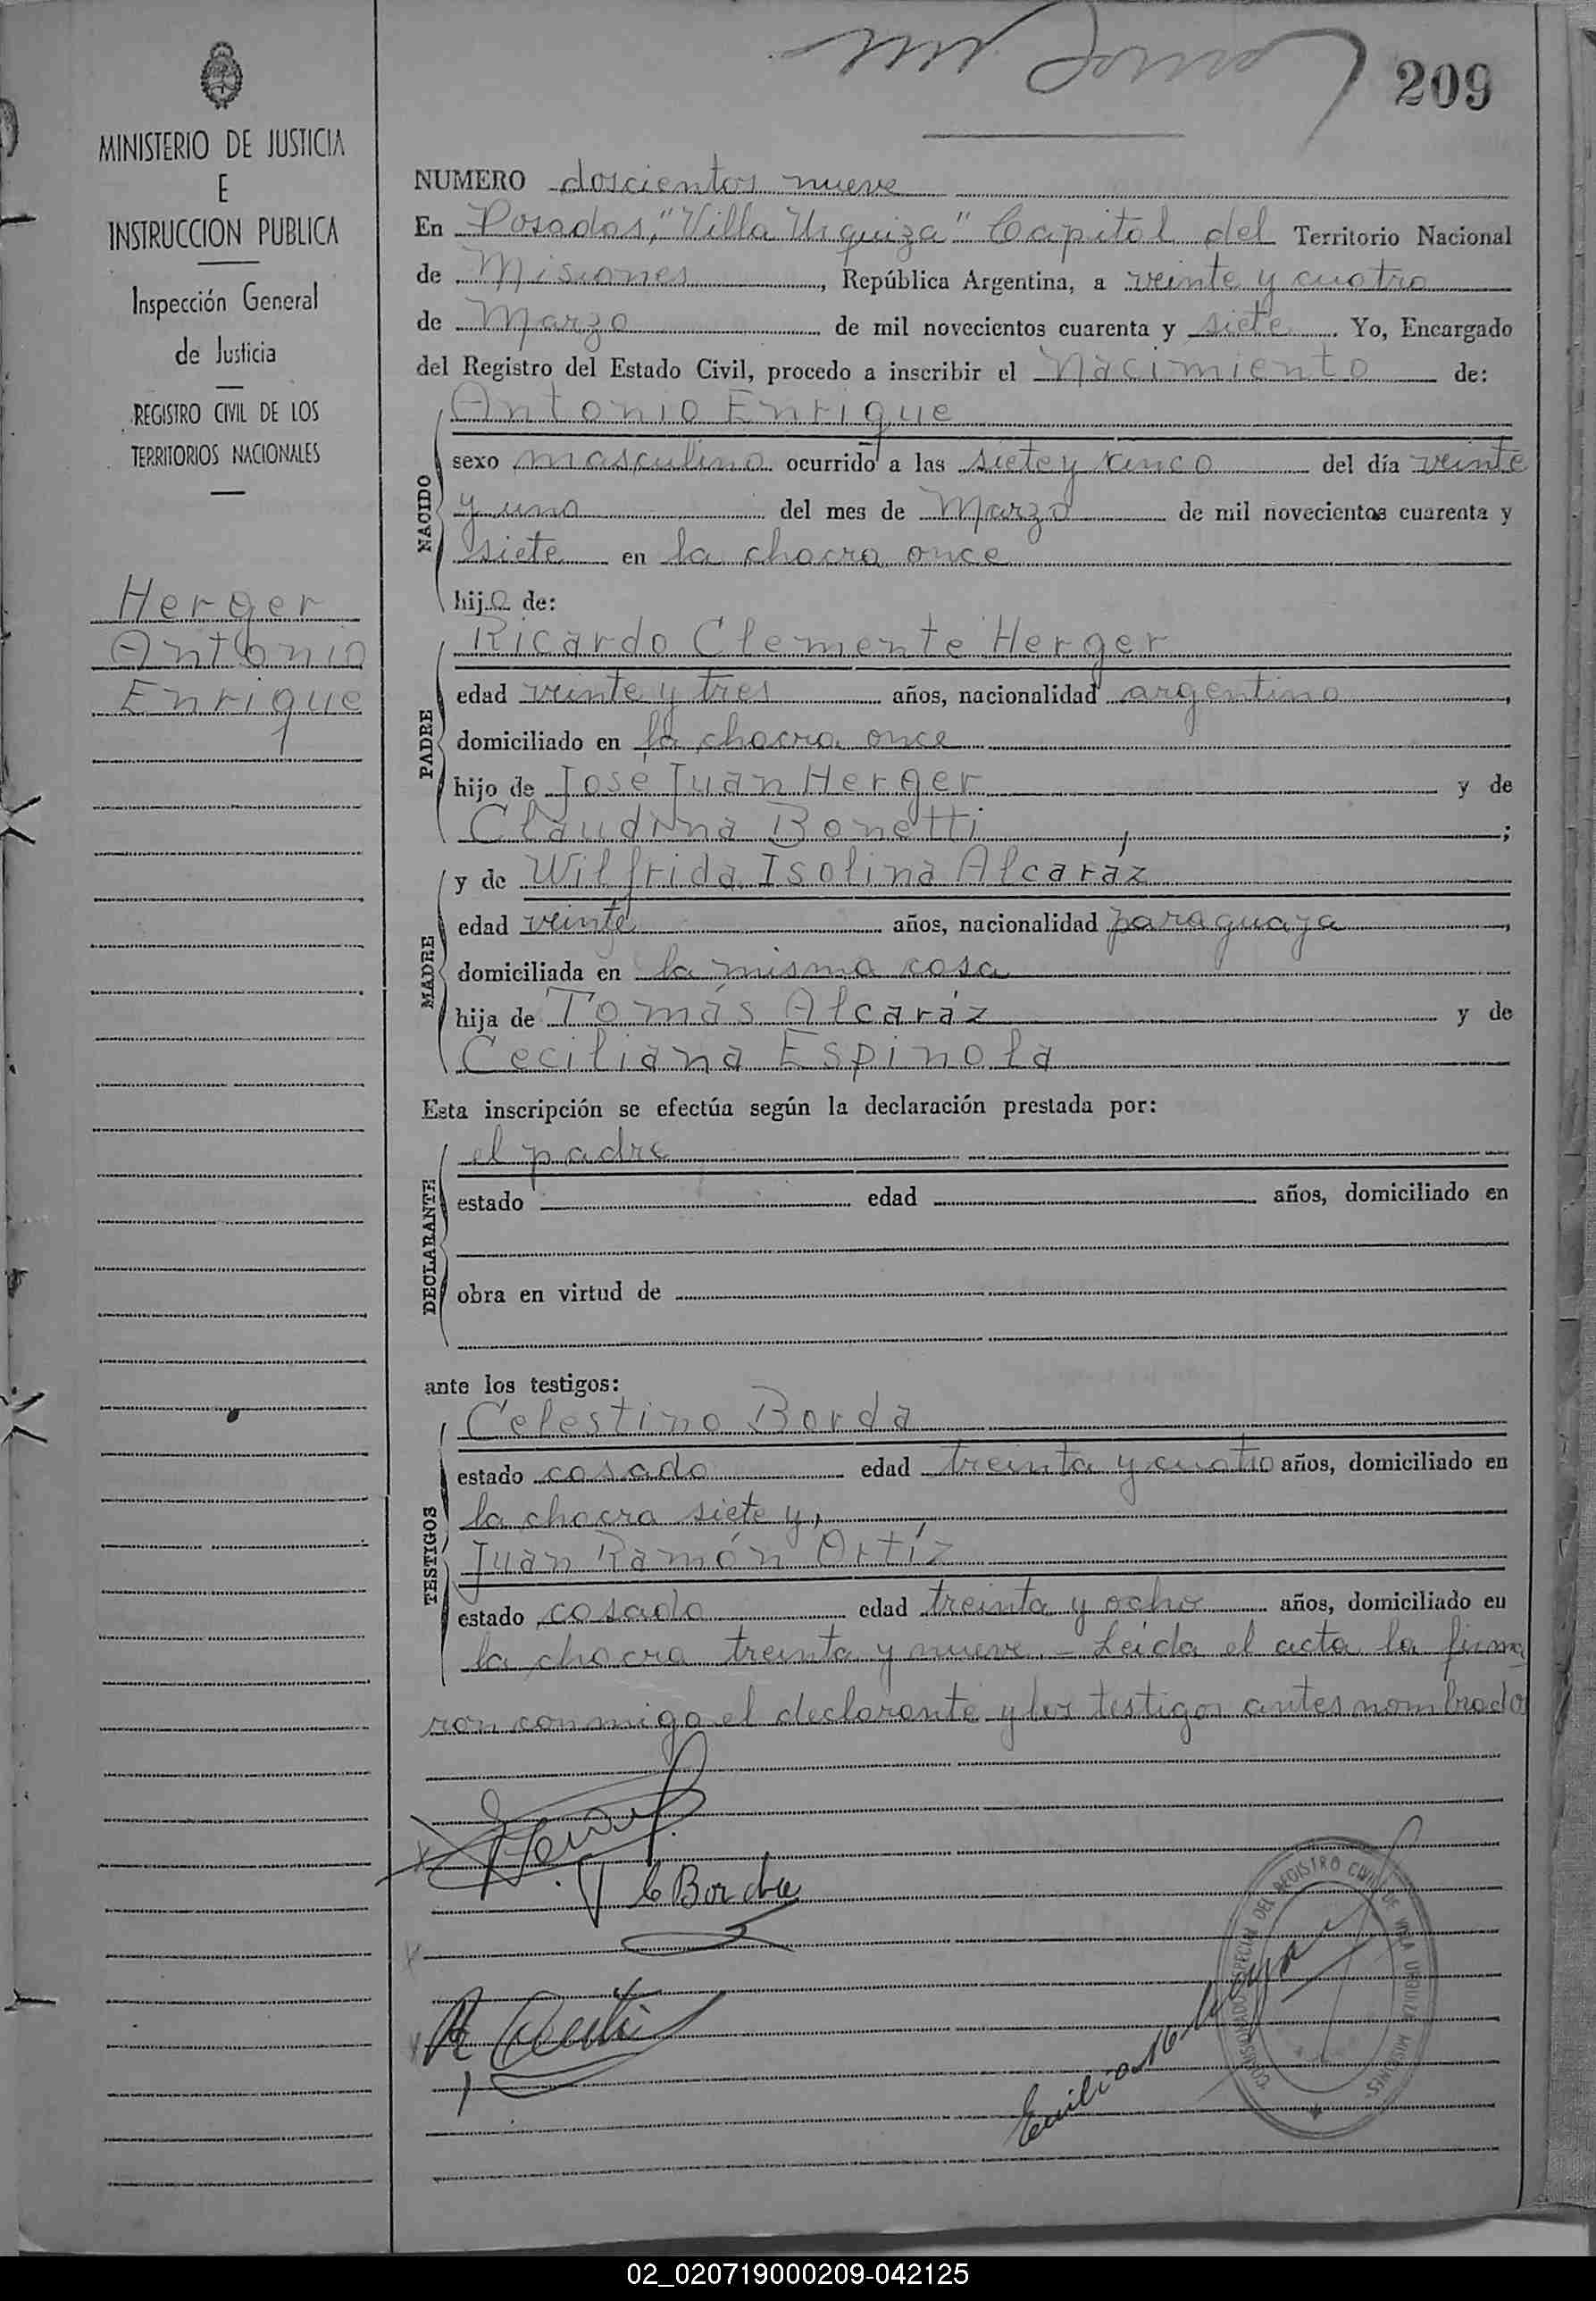 209
MINISTERIO DE JUSTICIA
E
INSTRUCCION PUBLICA
Inspección General
de Justicia
REGISTRO CIVIL DE LOS
TERRITORIOS NACIONALES
Herger
Antonio
Enrique
NUMERO doscientos nueve
En Posadas, "Villa Urquiza" Capital del Territorio Nacional
de Misiones, República Argentina, a veinte y cuatro
de Marzo de mil novecientos cuarenta y siete. Yo, Encargado
del Registro del Estado Civil, procedo a inscribir el Nacimiento de:
NACIDO
Antonio Enrique
sexo masculino ocurrido a las siete y cinco del día veinte
y uno del mes de Marzo de mil novecientos cuarenta y
siete en la chacra once
hijo de:
PADRE
Ricardo Clemente Herger
edad veinte y tres años, nacionalidad argentino,
domiciliado en la chacra once
hijo de José Juan Herger y de
Claudina Bonetti;
MADRE
y de Wilfrida Isolina Alcaráz
edad veinte años, nacionalidad paraguaya,
domiciliada en la misma casa
hija de Tomás Alcaráz y de
Ceciliana Espinola
Esta inscripción se efectúa según la declaración prestada por:
DECLARANTE
el padre
estado edad años, domiciliado en
obra en virtud de
ante los testigos:
TESTIGOS
Celestino Borda
estado casado edad treinta y cuatro años, domiciliado en
la chacra siete y,
Juan Ramón Ortíz
estado casado edad treinta y ocho años, domiciliado en
la chacra treinta y nueve.- Leida el acta la firma
ron conmigo el declarante y los testigos antes nombrados
C Borda
DEL REGISTRO CIVIL DE VILLA URQUIZA MISIONES
02_020719000209-042125